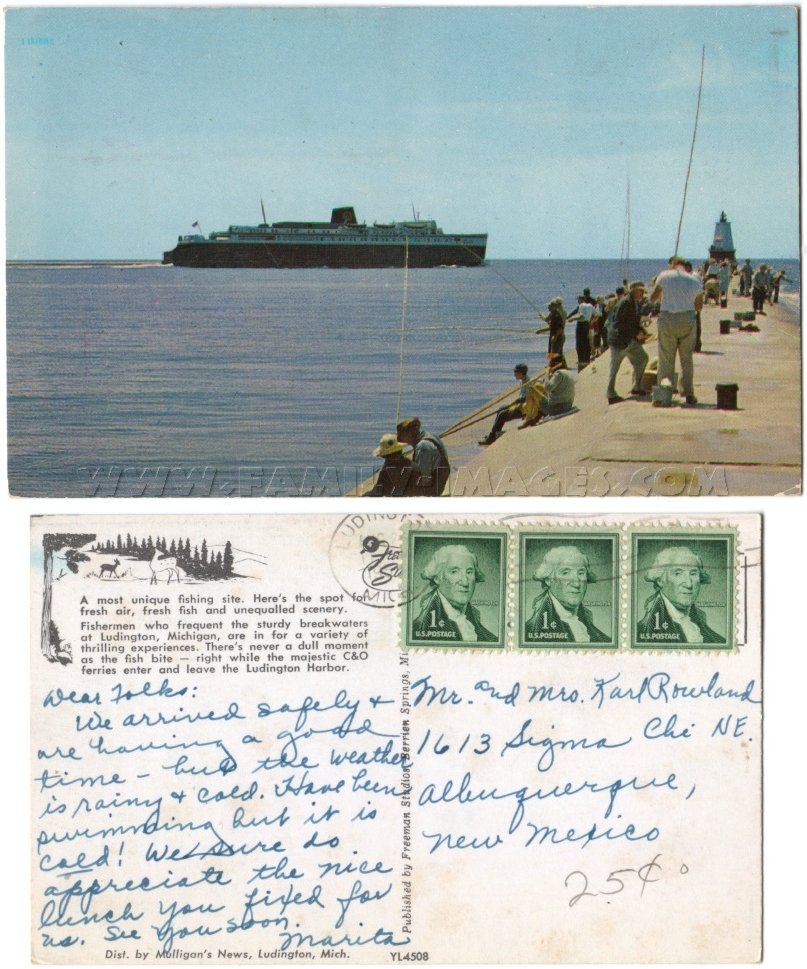 WWW.FAMILY-IMAGES.COM
LUDINGTON
MICH
1¢
WASHINGTON
U.S. POSTAGE
1¢
WASHINGTON
U.S. POSTAGE
1¢
WASHINGTON
U.S. POSTAGE
A most unique fishing site. Here's the spot for
fresh air, fresh fish and unequalled scenery.
Fishermen who frequent the sturdy breakwaters
at Ludington, Michigan, are in for a variety of
thrilling experiences. There's never a dull moment
as the fish bite – right while the majestic C&O
ferries enter and leave the Ludington Harbor.
Dear Folks:
We arrived safely &
are having a good
time – but the weather
is rainy & cold. Have been
swimming but it is
cold! We sure do
appreciate the nice
lunch you fixed for
us. See you soon.
Marita
Published by Freeman Studios, Berrien Springs, Mi
Mr. and Mrs. Karl Rowland
1613 Sigma Chi NE.
Albuquerque,
New Mexico
25¢
Dist. by Mulligan's News, Ludington, Mich.
YL4508